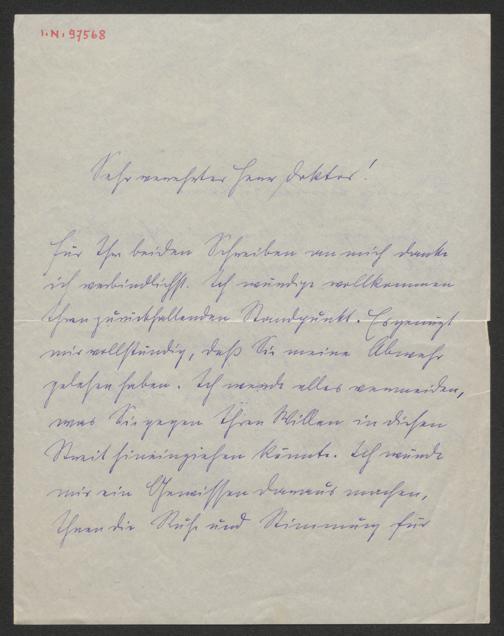 I.N. 97568
Sehr verehrter Herr Doktor!
Für Ihr beiden Schreiben an mich danke
ich verbindlichst. Ich würdige vollkommen
Ihren zurückhaltenden Standpunkt. Es genügt
mir vollständig, daß Sie meine Abwehr
gelesen haben. Ich werde alles vermeiden,
was Sie gegen Ihren Willen in diesen
Streit hineinziehen könnte. Ich würde
mir ein Gewissen daraus machen,
Ihnen die Ruhe und Stimmung für